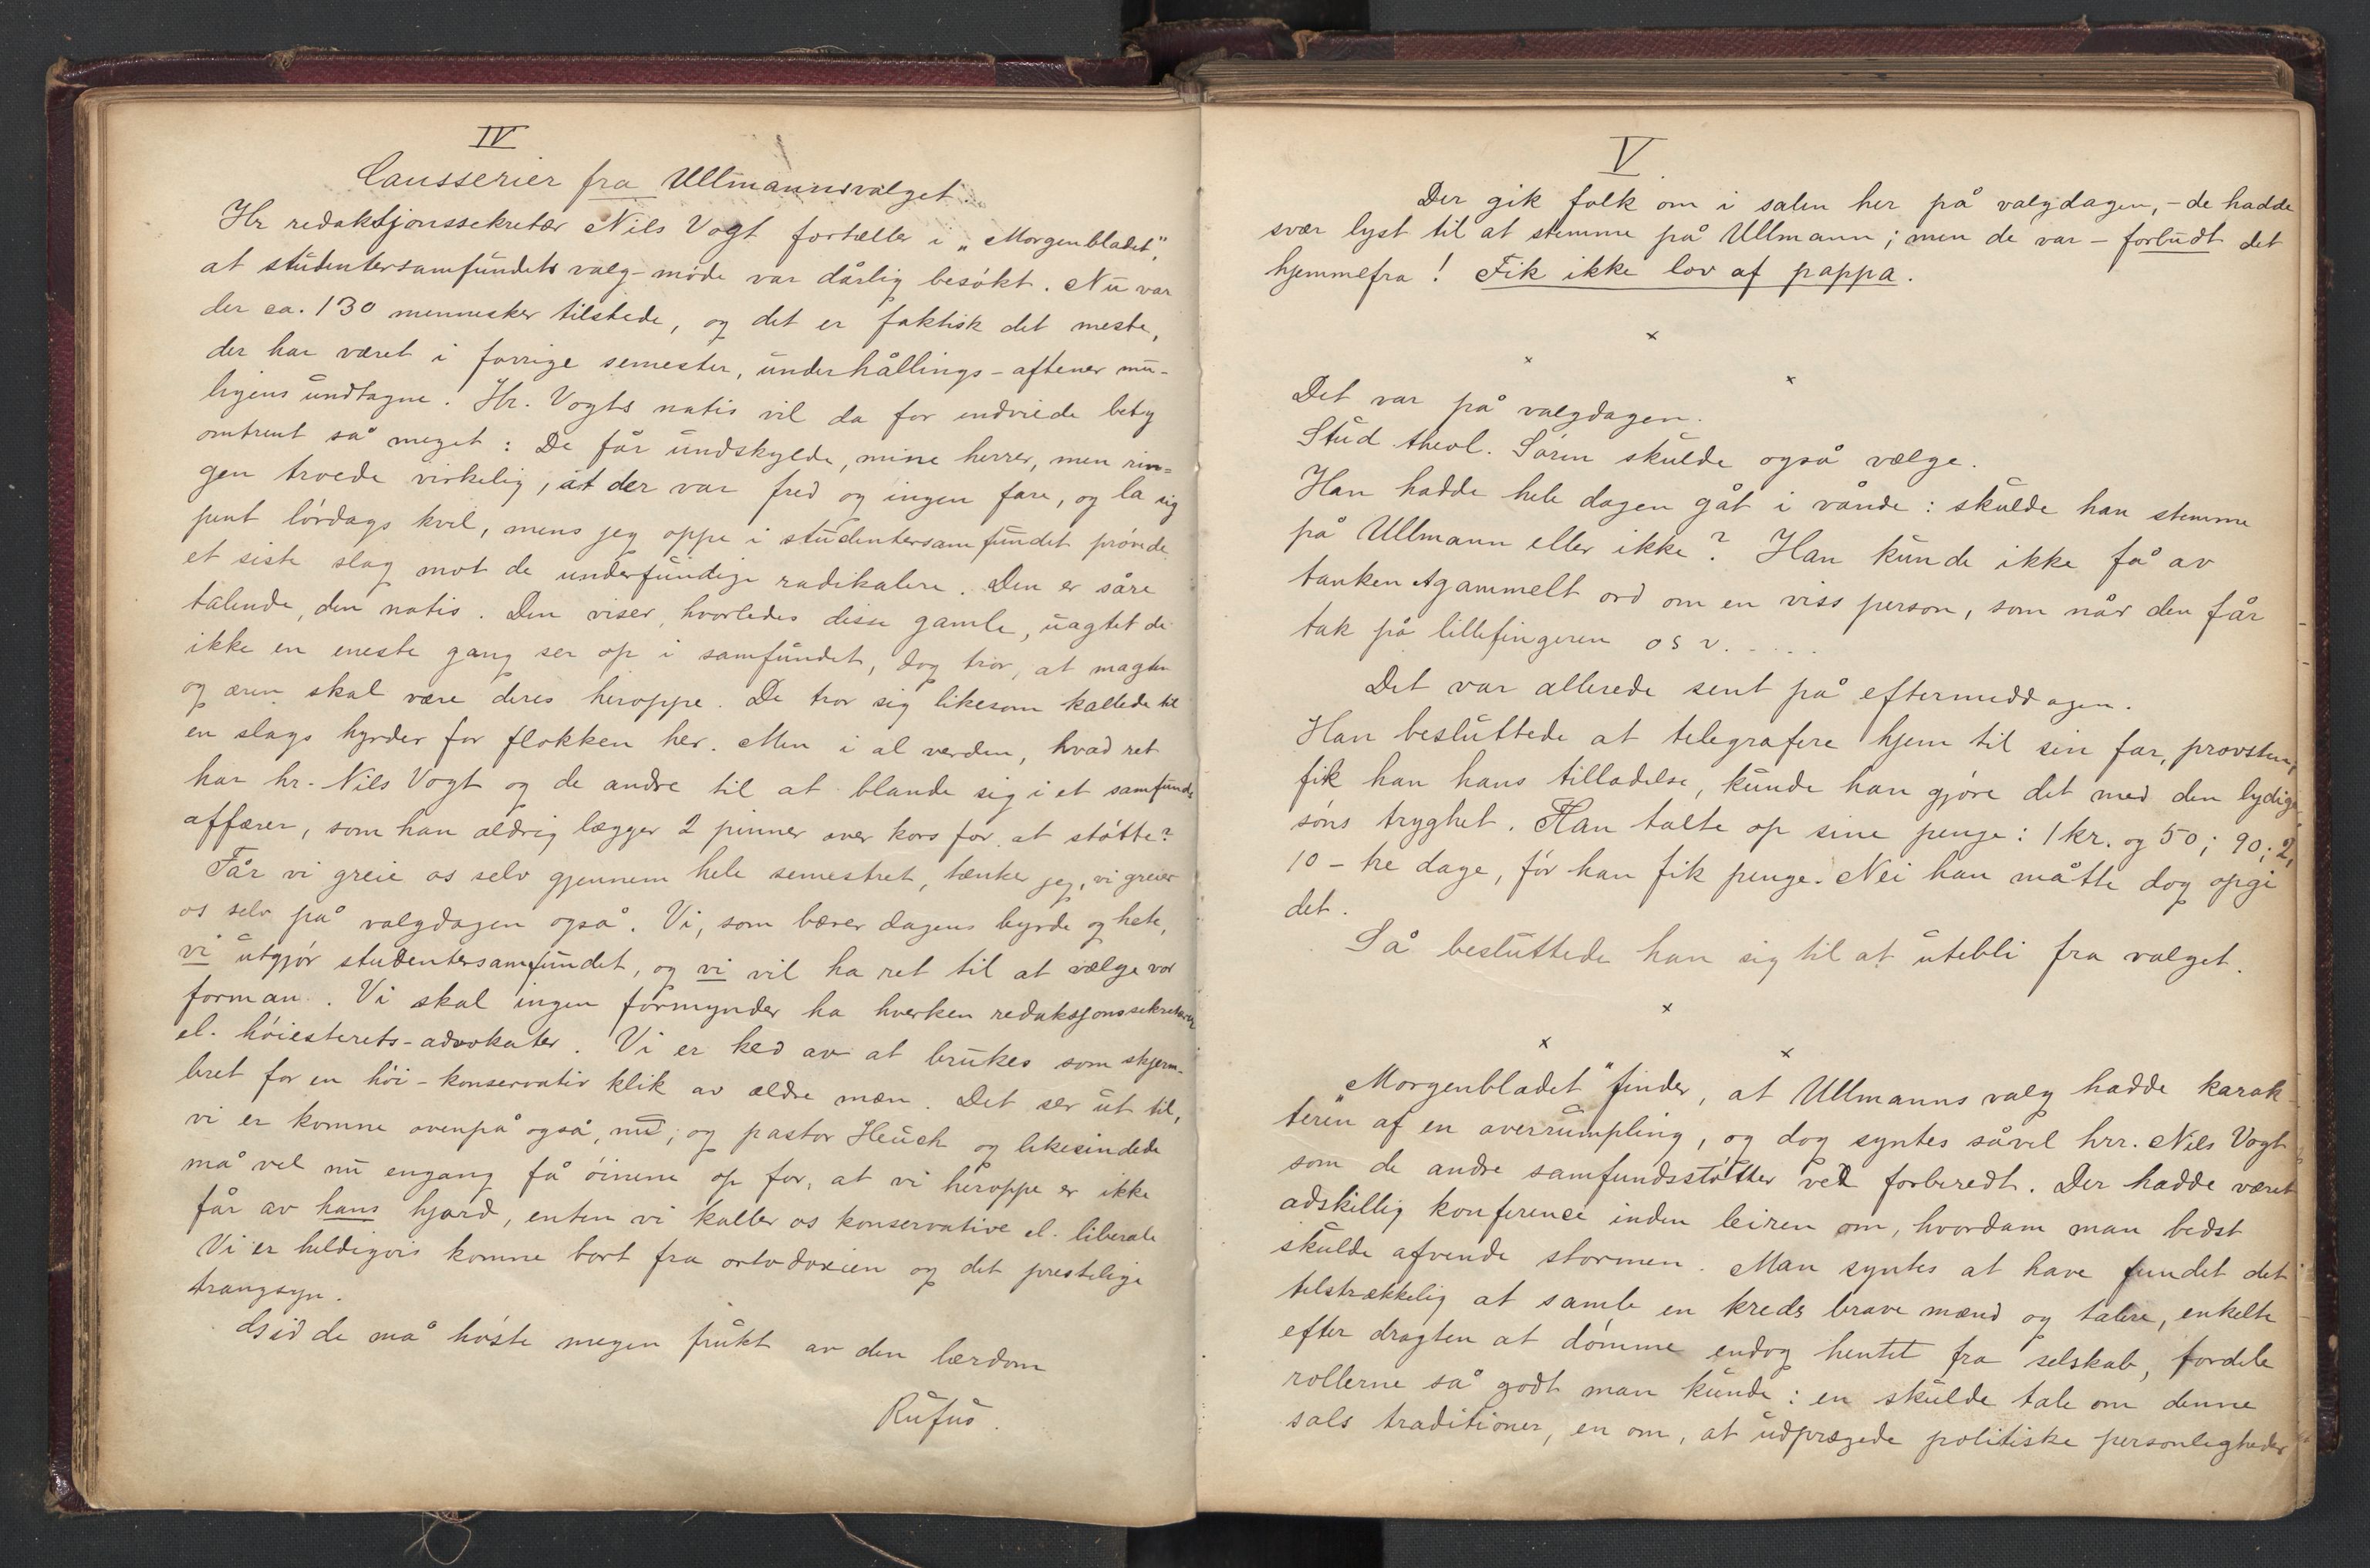 IV
Causserier fra Ullmannsvalget.
Hr redaktjonssekretær Nils Vogt fortæller i „Morgenbladet“,
at studentersamfundets valg-møde var dårlig besøkt. Nu var
der ca. 130 mennesker tilstede, og det er faktisk det meste,
der har været i forrige semester, underhållings-aftener mu-
ligens undtagne. Hr. Vogts notis vil da for indviede bety
omtrent så meget: De får undskylde, mine herrer, men rin=
gen troede virkelig, at der var fred og ingen fare, og la sig
pent lørdags kvel, mens jeg oppe i studentersamfundet prøvde
et siste slag mot de underfundige radikalere. Den er såre
talende, den notis. Den viser, hvorledes disse gamle, uagtet de
ikke en eneste gang ser op i samfundet, dog tror, at magten
og æren skal være deres heroppe. De tror sig likesom kallede til
en slags hyrder for flokken her. Men i al verden, hvad ret
har hr. Nils Vogt og de andre til at blande sig i et samfunds
affærer, som han aldrig lægger 2 pinner over kors for at støtte?
Får vi greie os selv gjennem hele semestret, tænker jeg, vi greier
os selv på valgdagen også. Vi, som bærer dagens byrde og hete,
vi utgjør studentersamfundet, og vi vil ha ret til at vælge vor
forman. Vi skal ingen formynder ha hverken redaksjonssekretærer
el. høiesterets-advokater. Vi er ked av at brukes som skjerm-
bret for en høi-konservativ klik av ældre mæn. Det ser ut til,
vi er komne ovenpå også, nu, og pastor Heuch og likesindede
må vel nu engang få øinene op for, at vi heroppe er ikke
får av hans hjord, enten vi kaller os konservative el. liberale
Vi er heldigvis komne bort fra ortodoxien og det prestelige
trangsyn.
Gid de må høste megen frukt av den lærdom
Rufus.
V
Der gik folk om i salen her på valgdagen, - de hadde
svær lyst til at stemme på Ullmann; men de var - forbudt det
hjemmefra! Fik ikke lov af pappa.
x
x x
Det var på valgdagen.
Stud. theol. Søren skulde også vælge.
Han hadde hele dagen gåt i vånde: skulde han stemme
på Ullmann eller ikke? Han kunde ikke få av
tanken et gammelt ord om en viss person, som når den får
tak på lillefingeren osv. . . . .
Det var allerede sent på eftermiddagen.
Han besluttede at telegrafere hjem til sin far, provsten;
fik han hans tilladelse, kunde han gjøre det med den lydige
søns tryghet. Han talte op sine penge: 1 kr. og 50; 90; 2,
10 - tre dage, før han fik penge. Nei han måtte dog opgi
det.
Så besluttede han sig til at utebli fra valget.
x
x x
„Morgenbladet“ finder, at Ullmanns valg hadde karak-
teren af en overrumpling, og dog syntes såvel hrr. Nils Vogt
som de andre samfundsstøtter vel forberedt. Der hadde været
adskillig konference inden leiren om, hvordam man bedst
skulde afvende stormen. Man syntes at have fundet det
tilstrækkelig at samle en kreds brave mænd og talere, enkelte
efter dragten at dømme endog hentet fra selskab, fordele
rollerne så godt man kunde: en skulde tale om denne
sals traditioner, en om, at udprægede politiske personligheder